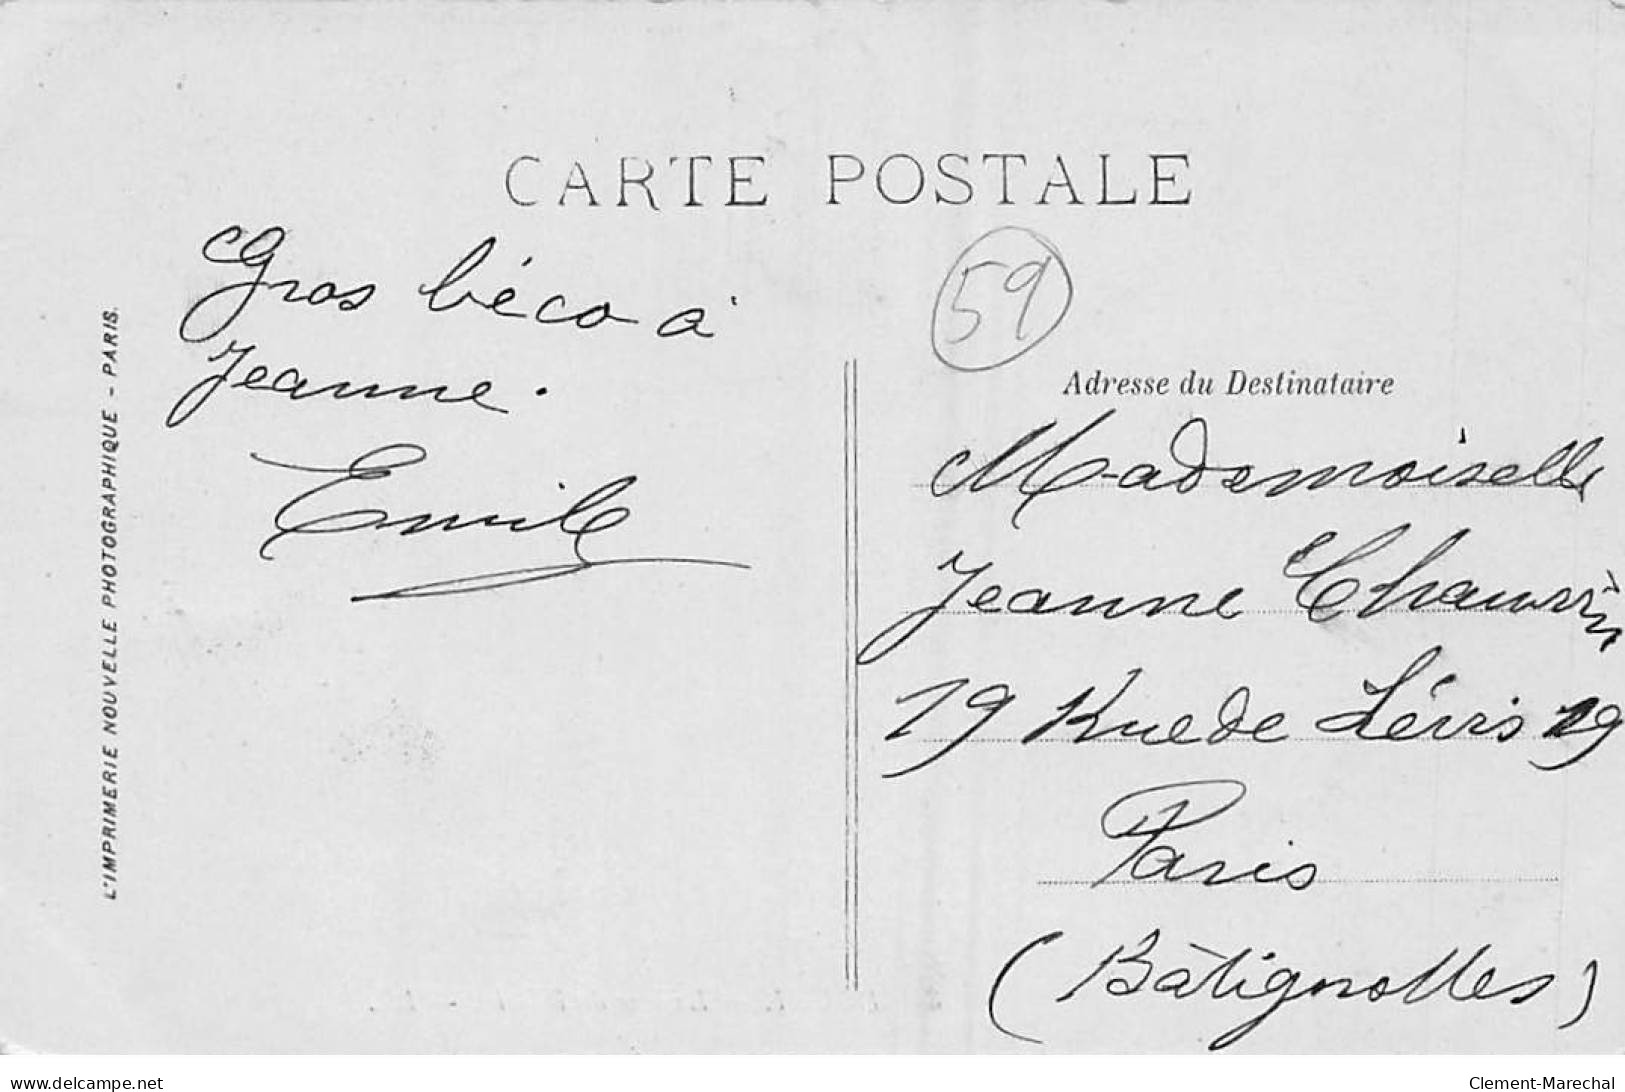 CARTE POSTALE
Gros béco à
Jeanne.
Emile
59
Adresse du Destinataire
Mademoiselle
Jeanne Chauvin
19 Rue de Lévis 19
Paris
(Bâtignolles)
L'IMPRIMERIE NOUVELLE PHOTOGRAPHIQUE - PARIS.
www.delcampe.net
Clement-Marechal